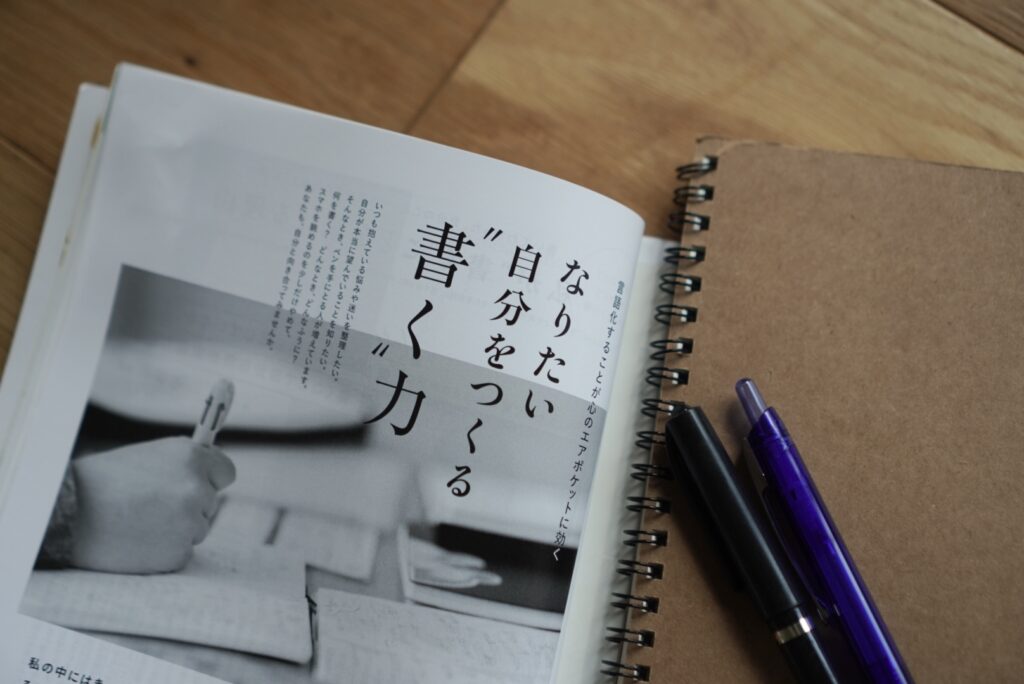 言語化することが心のエアポケットに効く
なりたい
自分をつくる
〝書く〟力
いつも抱えている悩みや迷いを整理したい。
自分が本当に望んでいることを知りたい。
そんなとき、ペンを手にとる人が増えています。
何を書く？ どんなとき、どんなふうに？
スマホを眺めるのを少しだけやめて、
あなたも、自分と向き合ってみませんか。
私の中には